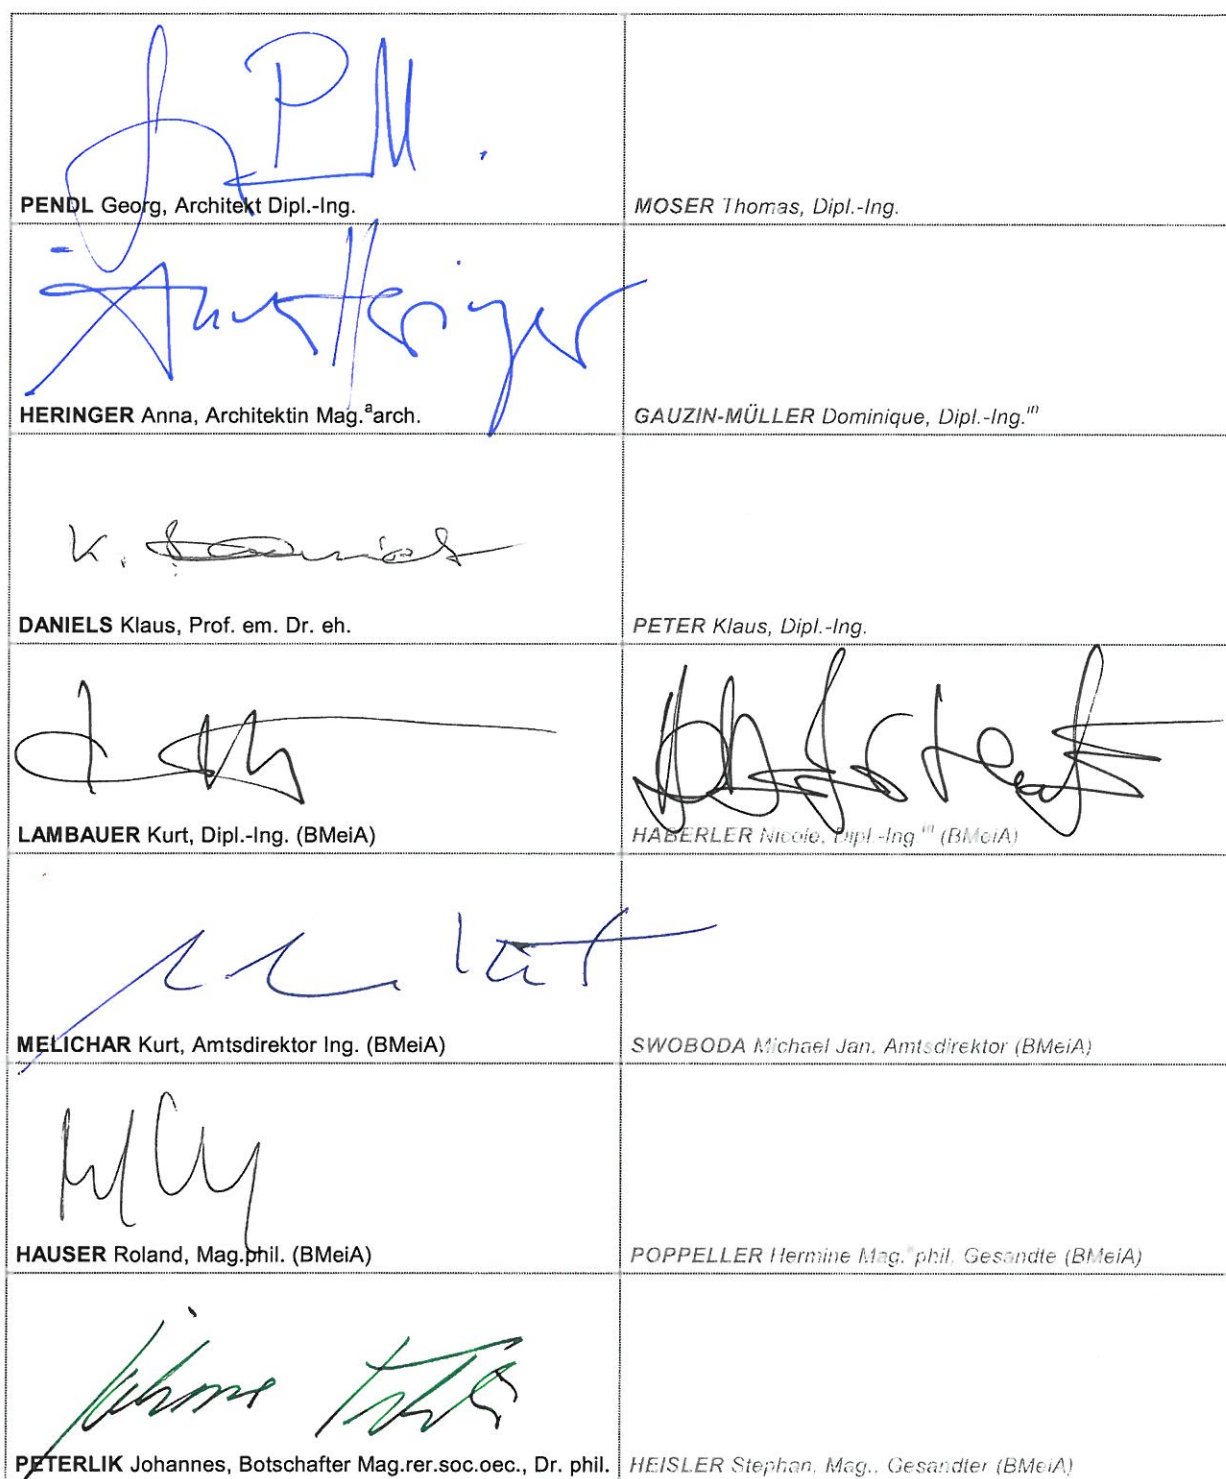 PENDL Georg, Architekt Dipl.-Ing.
MOSER Thomas, Dipl.-Ing.
Anna Heringer
HERINGER Anna, Architektin Mag.ªarch.
GAUZIN-MÜLLER Dominique, Dipl.-Ing.ⁱⁿ
K. Daniels
DANIELS Klaus, Prof. em. Dr. eh.
PETER Klaus, Dipl.-Ing.
LAMBAUER Kurt, Dipl.-Ing. (BMeiA)
HABERLER Nicole, Dipl.-Ing.ⁱⁿ (BMeiA)
MELICHAR Kurt, Amtsdirektor Ing. (BMeiA)
SWOBODA Michael Jan, Amtsdirektor (BMeiA)
HAUSER Roland, Mag.phil. (BMeiA)
POPPELLER Hermine Mag.ªphil. Gesandte (BMeiA)
PETERLIK Johannes, Botschafter Mag.rer.soc.oec., Dr. phil.
HEISLER Stephan, Mag., Gesandter (BMeiA)